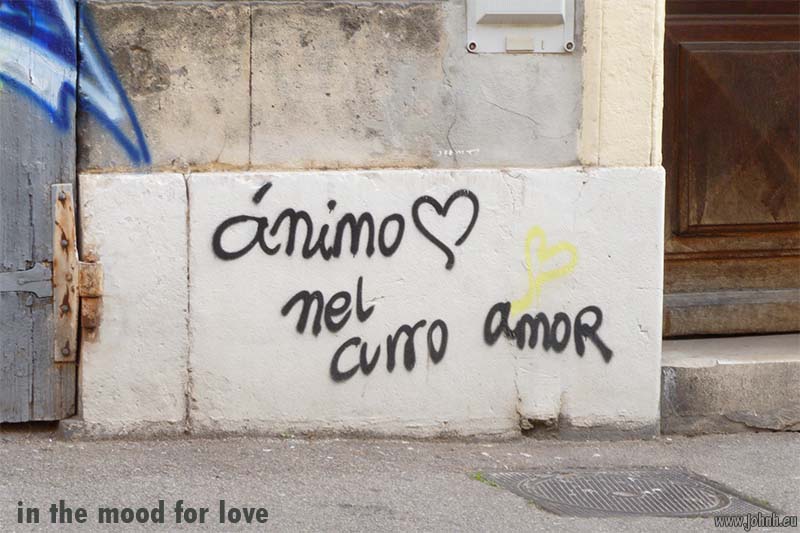 ánimo
nel
curro amoR
in the mood for love
www.johnh.eu